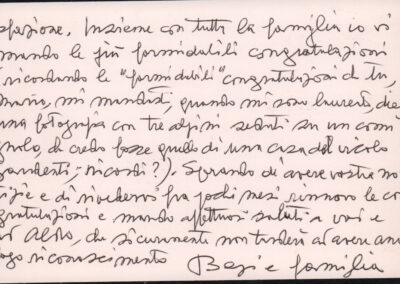 sfazione. Insieme con tutta la famiglia io vi
mando le più formidabili congratulazioni
ricordando le "formidabili" congratulazioni di tu,
mi mandasti, quando mi sono laureato, die
una fotografia con tre alpini seduti su un comi
gnolo, che credo fosse quello di una casa del vicolo
ricordi?). Sperando di avere vostre no
tizie e di rivedervi fra pochi mesi rinnovo le co
gratulazioni e mando affettuosi saluti a voi e
Aldo, che sicuramente non tarderà ad avere ana
logo riconoscimento Basi e famiglia